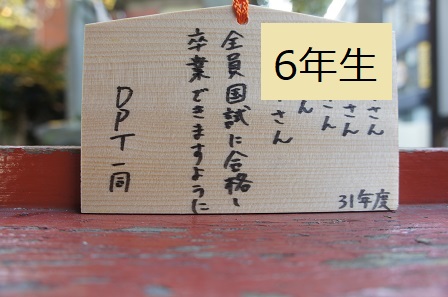 6年生
さん
さん
さん
ん
さん
全員国試に合格し
卒業できますように
DPT一同
31年度